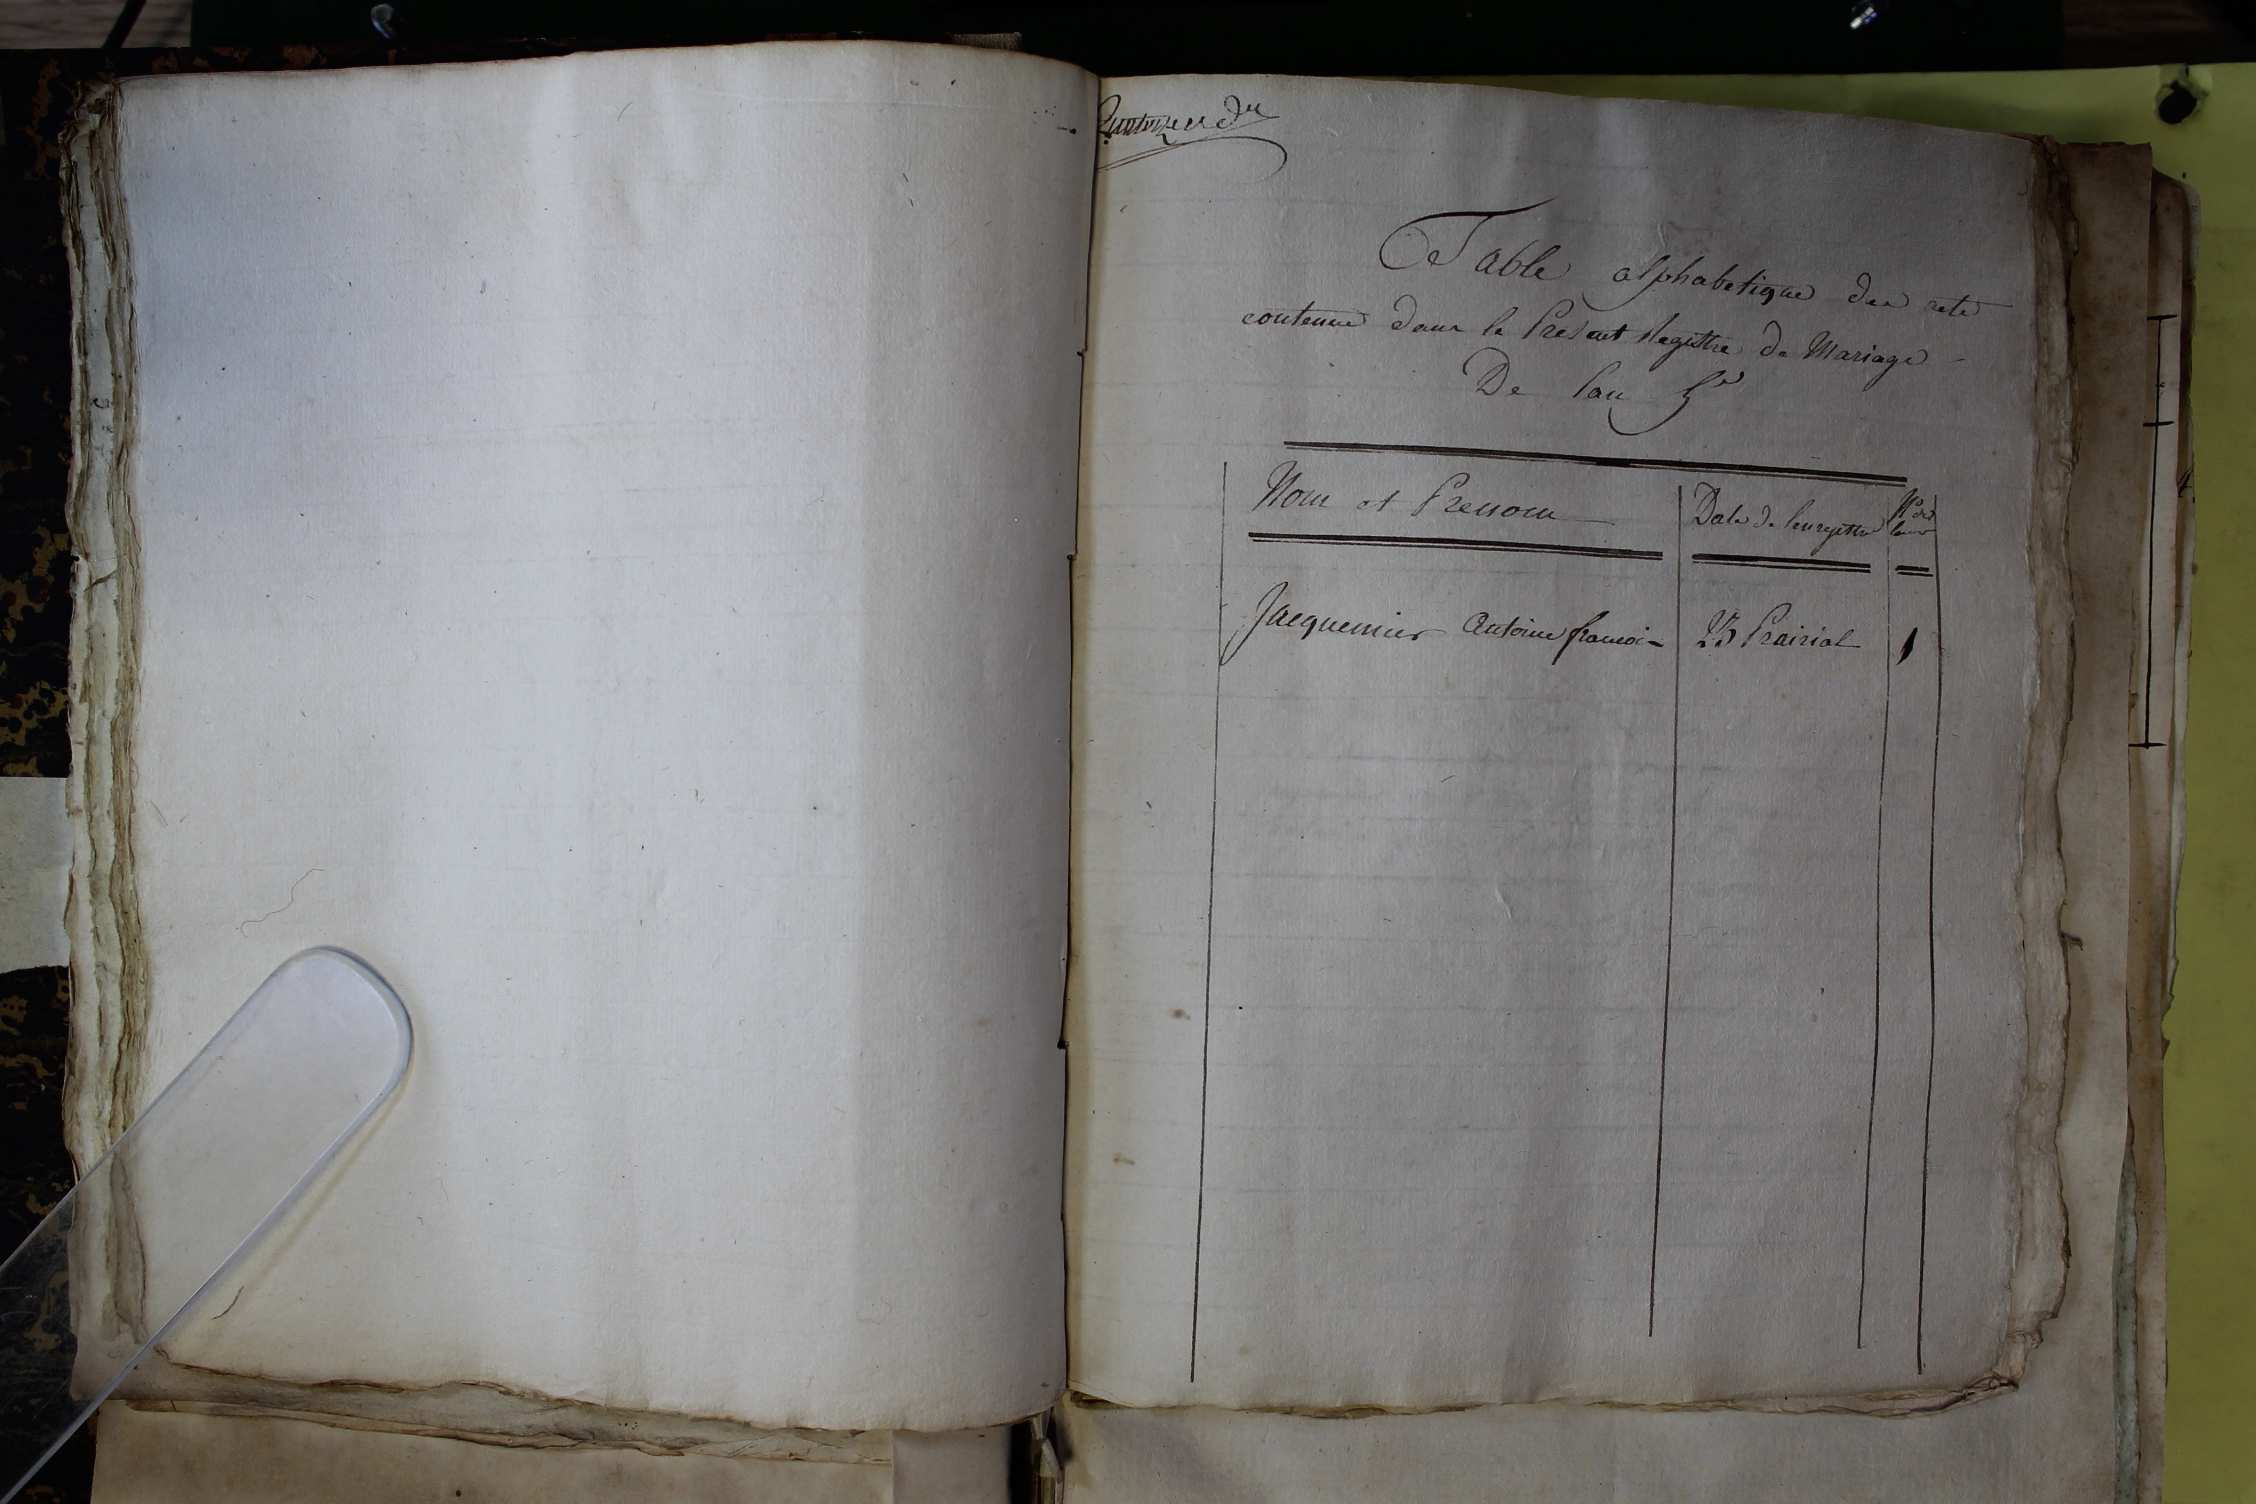 Table alphabetique des acte
contenue dans le Present Registre de Mariage
De lan 5e
Nom et Prenom
Date de lenregistre
No
Jacquemier Antoine francois
23 Prairial
1